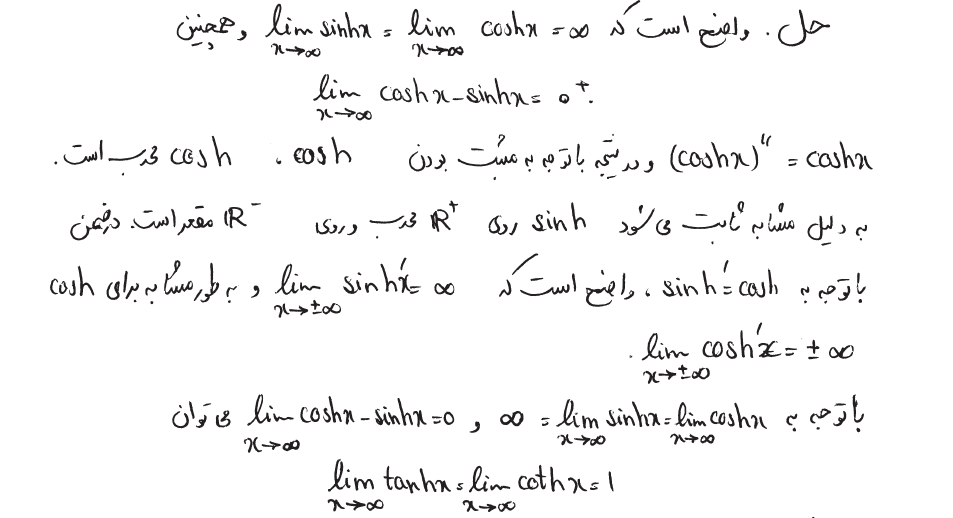 حل. واضح است که lim_{x→∞} sinhx = lim_{x→∞} coshx = ∞ و همچنین
lim_{x→∞} coshx - sinhx = 0⁺.
(coshx)'' = coshx و در نتیجه با توجه به مثبت بودن cosh، cosh محدب است.
به دلیل مشابه ثابت می شود sinh روی ℝ⁺ محدب و روی ℝ⁻ مقعر است. در ضمن
با توجه به sinh' = cosh، واضح است که lim_{x→±∞} sinh'x = ∞ و به طور مشابه برای cosh
lim_{x→±∞} cosh'x = ±∞.
با توجه به lim_{x→∞} coshx = lim_{x→∞} sinhx = ∞ و lim_{x→∞} coshx - sinhx = 0 می توان
lim_{x→∞} tanhx = lim_{x→∞} cothx = 1